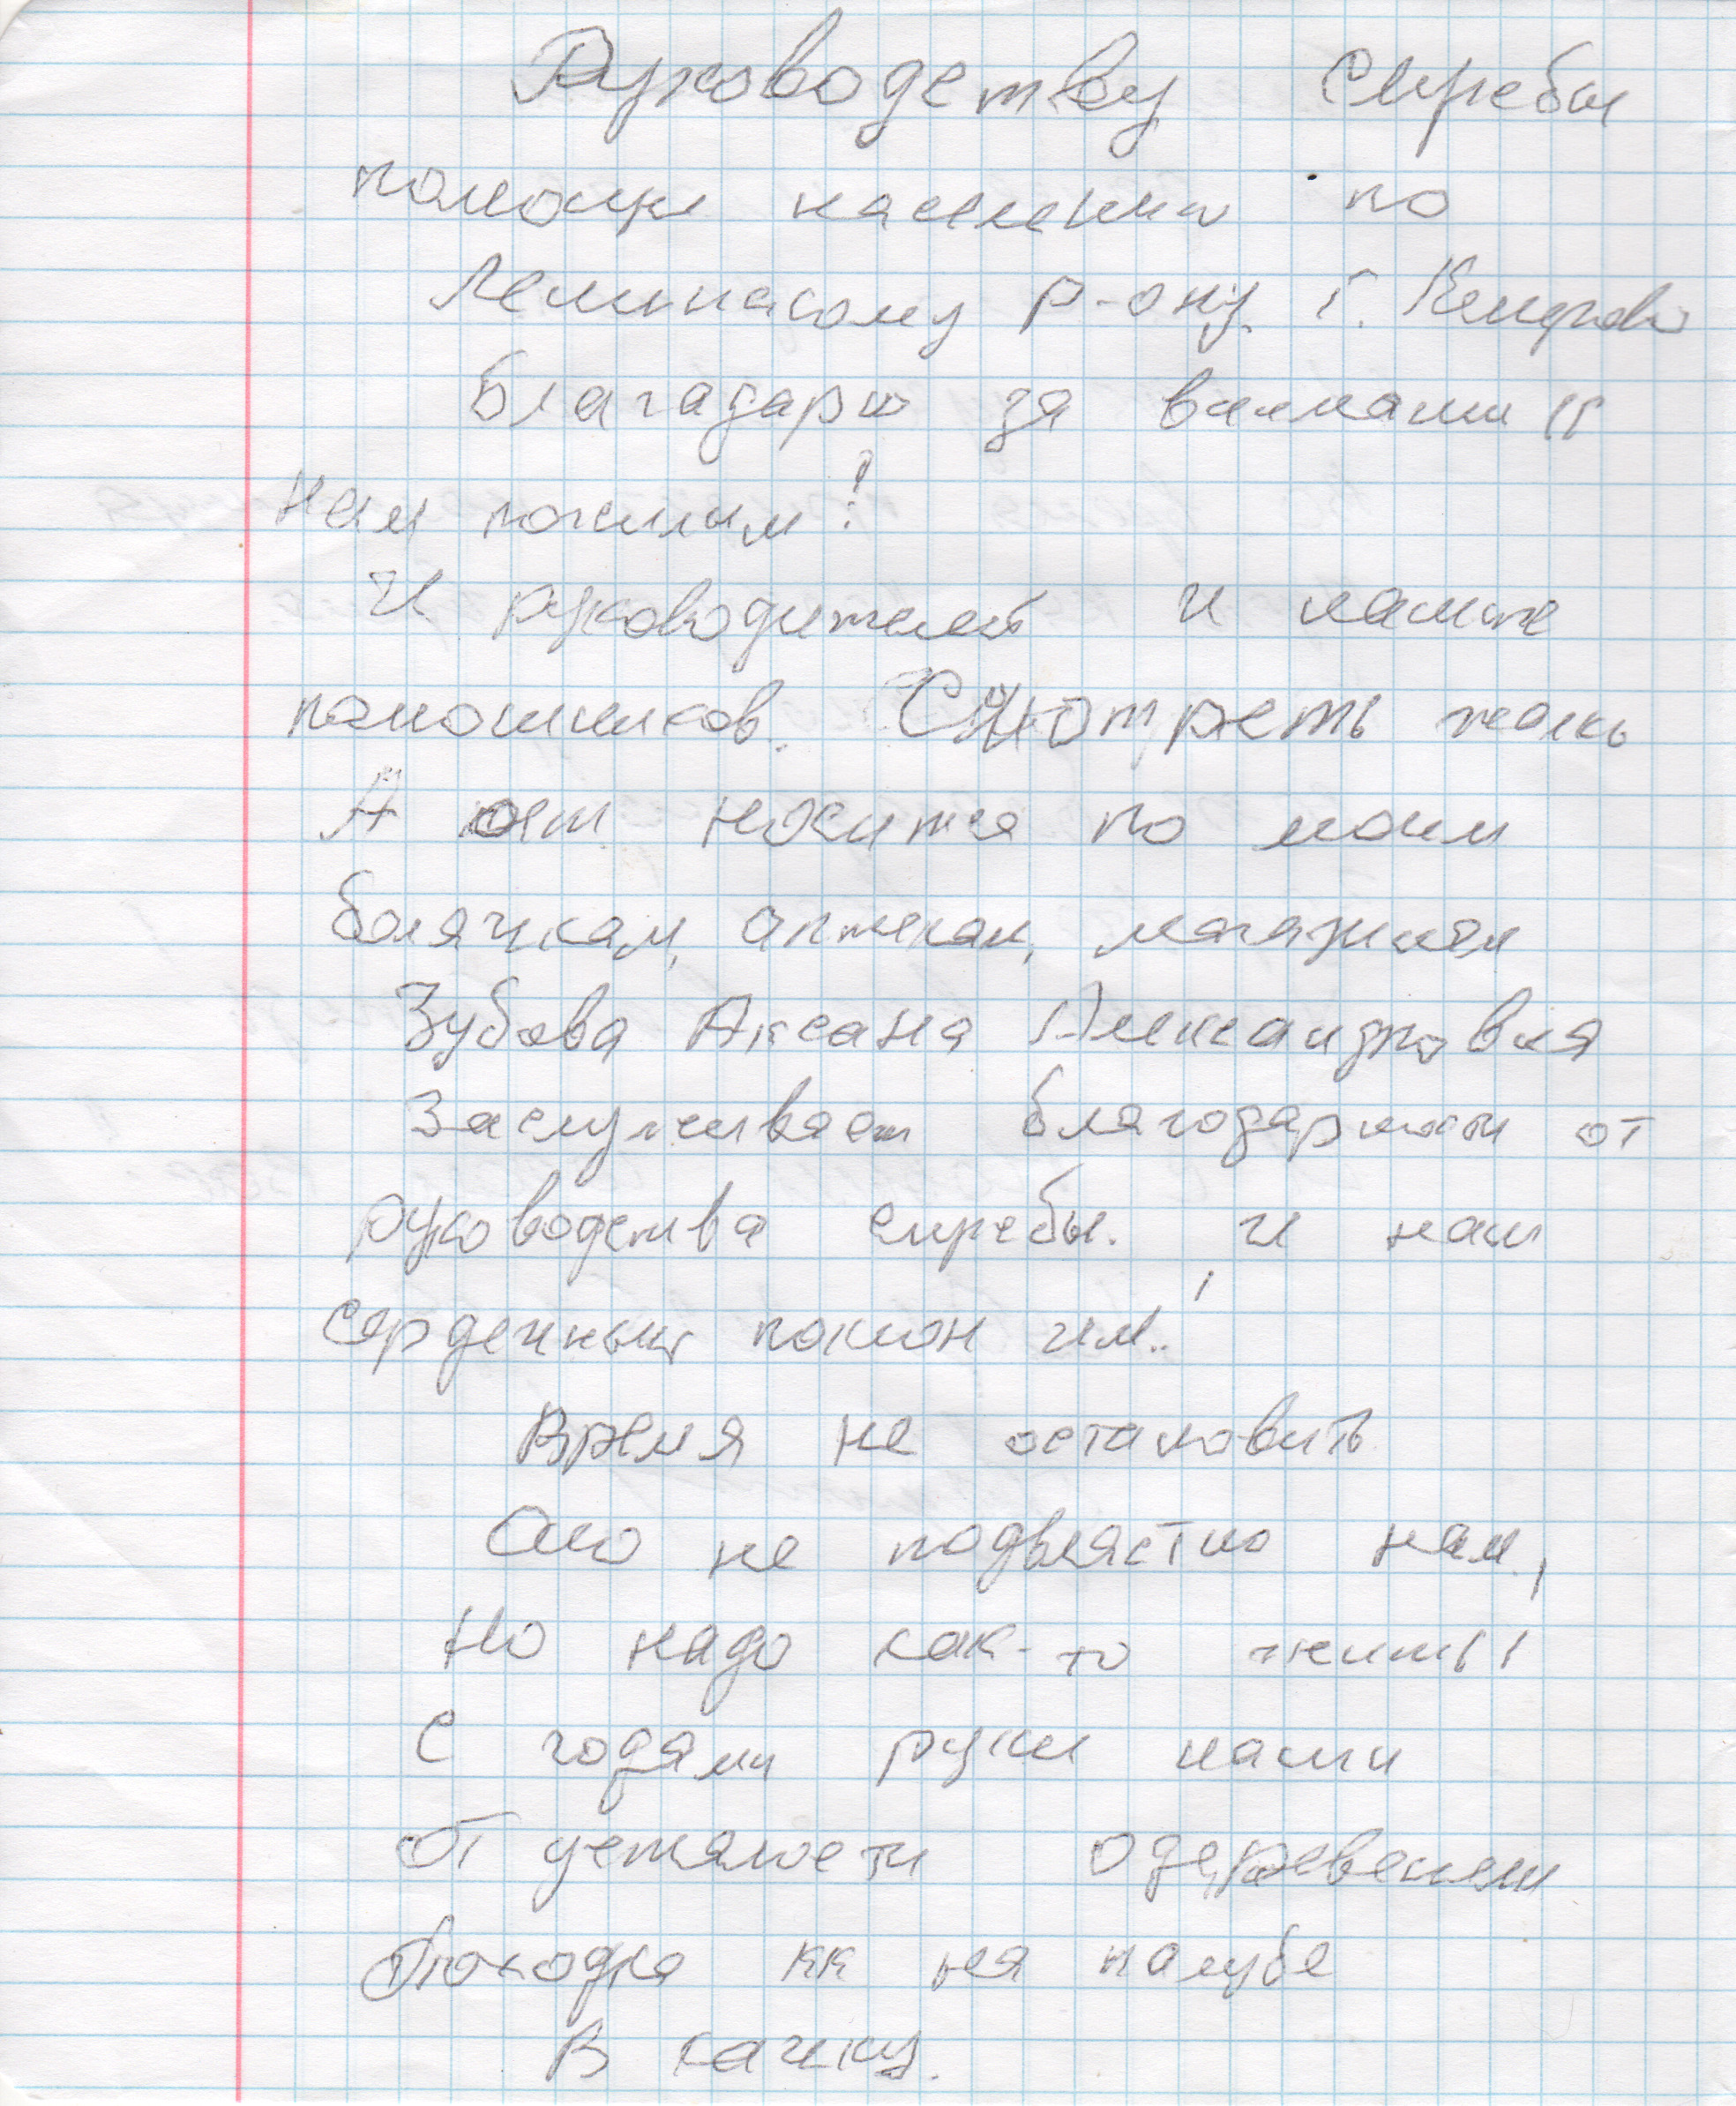 Руководству службы
помощи населению по
Ленинскому р-ону. г. Кемерово
Благадарю за внимание
нам пожилым!
И руководителей и наших
помошников. Смотреть жалко
А носится по моим
болячкам, аптекам, магазинам
Зубова Аксана Александровна
Заслуживает благодарности от
руководства службы. и наш
Серденчный поклон им..!
Время не остановить
Оно не подвластно нам,
Но надо как-то жить!
С годами руки наши
От усталости одеревенели
Походка кк на палубе
В качку.